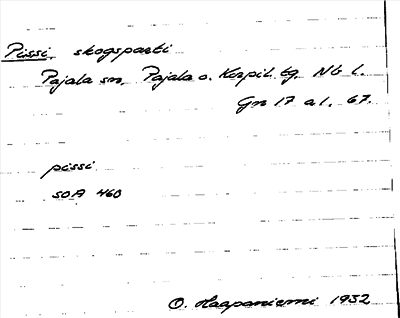 Pissi, skogsparti
Pajala sn, Pajala o. Korpil. tg. Nb l.
Gn 17 al. 67.
pissi
SOA 460
O. Haapaniemi 1932